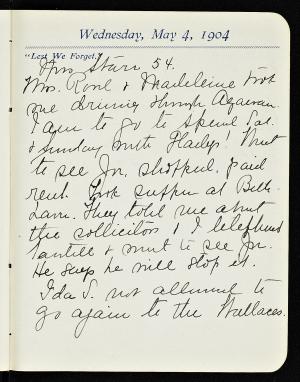 Wednesday, May 4, 1904
"Lest We Forget."
Mrs Starr 54.
Mrs. Rowl & Madeleine took
me driving through Agawam.
I am to go to spend Sat.
& Sunday with Gladys. Went
to see Jr, shopped, paid
rent. Took supper at Beth
Lam. They told me about
the collicitors & I telephoned
& went to see Jr.
He says he will stop it.
Ida S. not allowed to
go again to the Wallaces.